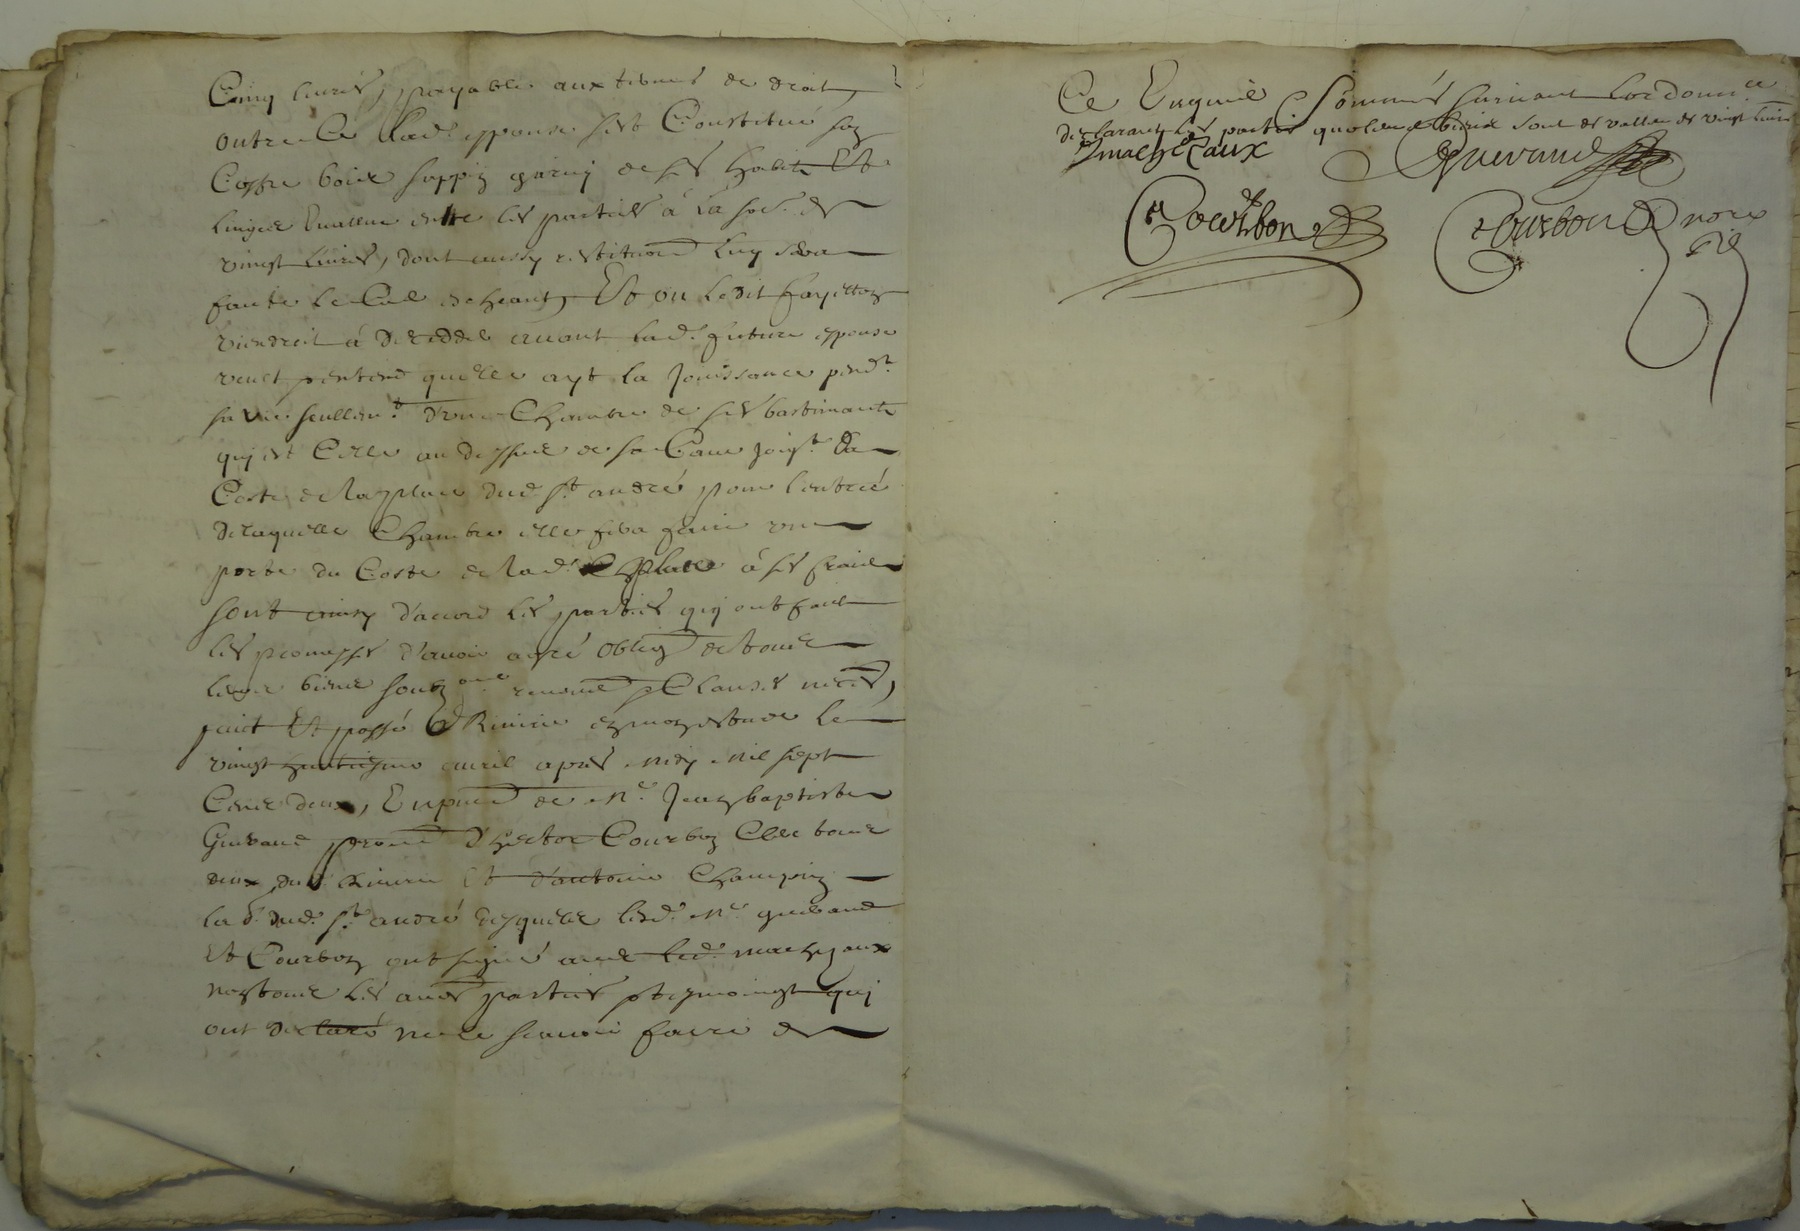 Cinq livres, payable aux termes de droit,
outre ce lad. espouse sest Constitué son
Coffre bois sappin garny de ses habits Et
linges Evallué entre les parties à la so.e de
vingt livres, dont aussy restitution luy sera
faite le Cas escheant, Et ou ledit fayetton
viendroit à deceddér avant lad. future espouse
veut pentend quelle ayt la Jouissance pend.t
sa vie seullem.t d'une Chambre de ses bastimants
quj est Celle au dessus de sa Cave joig.t du
Costé de la place dud. s.t andré pour lentrée
de laquelle Chambre elle fera faire une
porte du Costé de lad. place à ses frais
sont ainsy d'accord les parties quj ont fait
les promesses d'avoir agréé oblig de tous
leurs biens soub renond Clauses neces,
fait Et passé Riviere en mon estude le
vingt huitiesme avril apres midy mil sept
Cens deux, En pnce de M.e Jean baptiste
Guerand d'hector Courbon Clerc tous
deux dud. Riviere Et d'antoine Champin
lad. dud. s.t andré desquels lesd. M.e guerand
Et Courbon ont signé avec led. marheaux
non tous les aues parties ptesmoingt quj
ont declaré ne le scavoir faire de
Ce Enquis Sommés suivant lordonn.ce
declarants les parties que leurs biens sont de valleur de vingt livres
Jmarheaux Guerand
Courbon Courbon nore